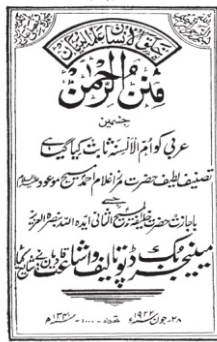 خلق الانسان علمہ البیان
منن الرحمٰن
جسمیں
عربی کو اُمّ الالسنہ ثابت کیا گیا ہے
تصنیف لطیف حضرت مرزا غلام احمد مسیح موعود علیہ السلام
جسے
باجازت حضرت خلیفۃ المسیح الثانی ایدہ اللہ بنصرہ العزیز
مینیجر بک ڈپو تالیف و اشاعت قادیان نے شائع کیا
۲۸-جون ۱۹۲۲ء تعداد ۱۰۰۰ ۱۳۴۰ھ